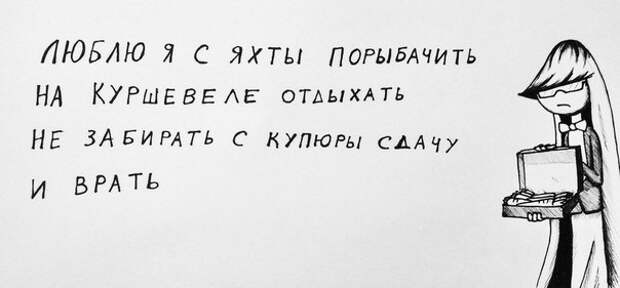 ЛЮБЛЮ Я С ЯХТЫ ПОРЫБАЧИТЬ
НА КУРШЕВЕЛЕ ОТДЫХАТЬ
НЕ ЗАБИРАТЬ С КУПЮРЫ СДАЧУ
И ВРАТЬ